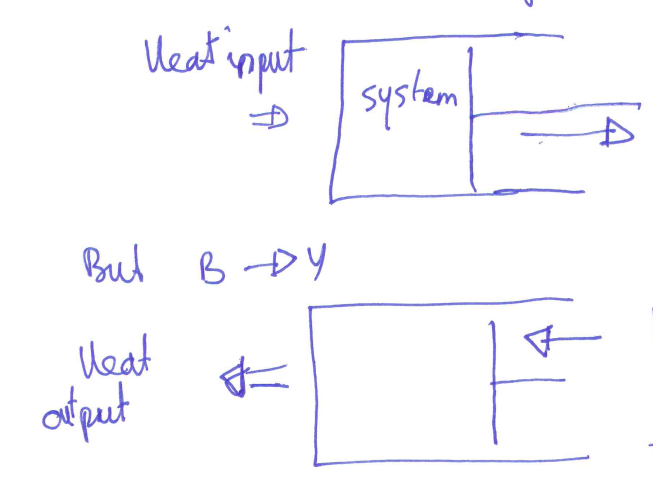 Heat input
system
But B → Y
Heat
output